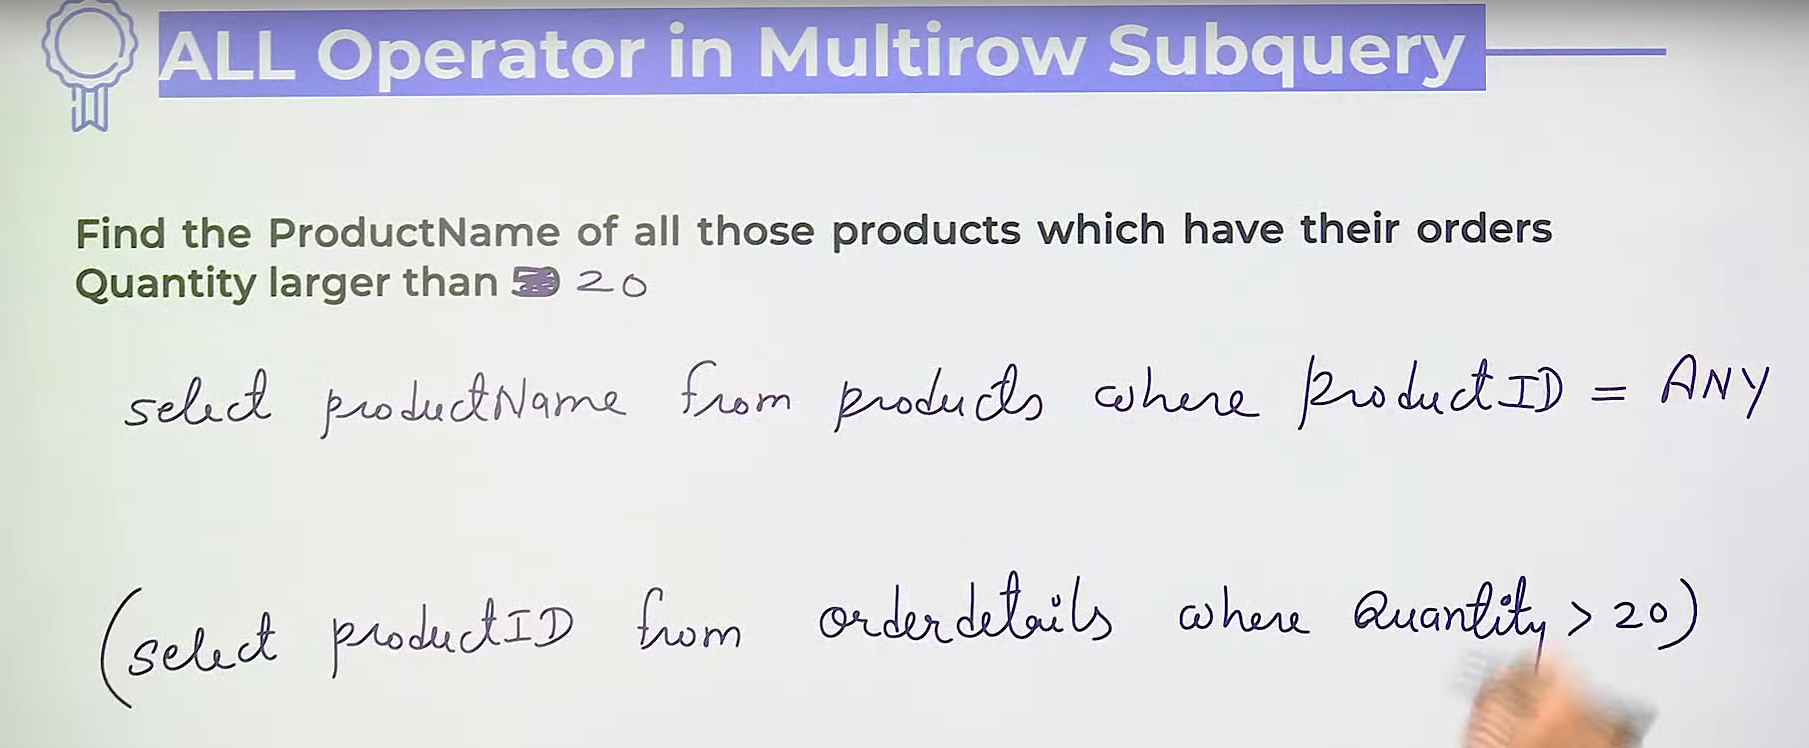 ALL Operator in Multirow Subquery
Find the ProductName of all those products which have their orders
Quantity larger than 20
select productName from products where productID = ANY
(select productID from orderdetails where Quantity > 20)